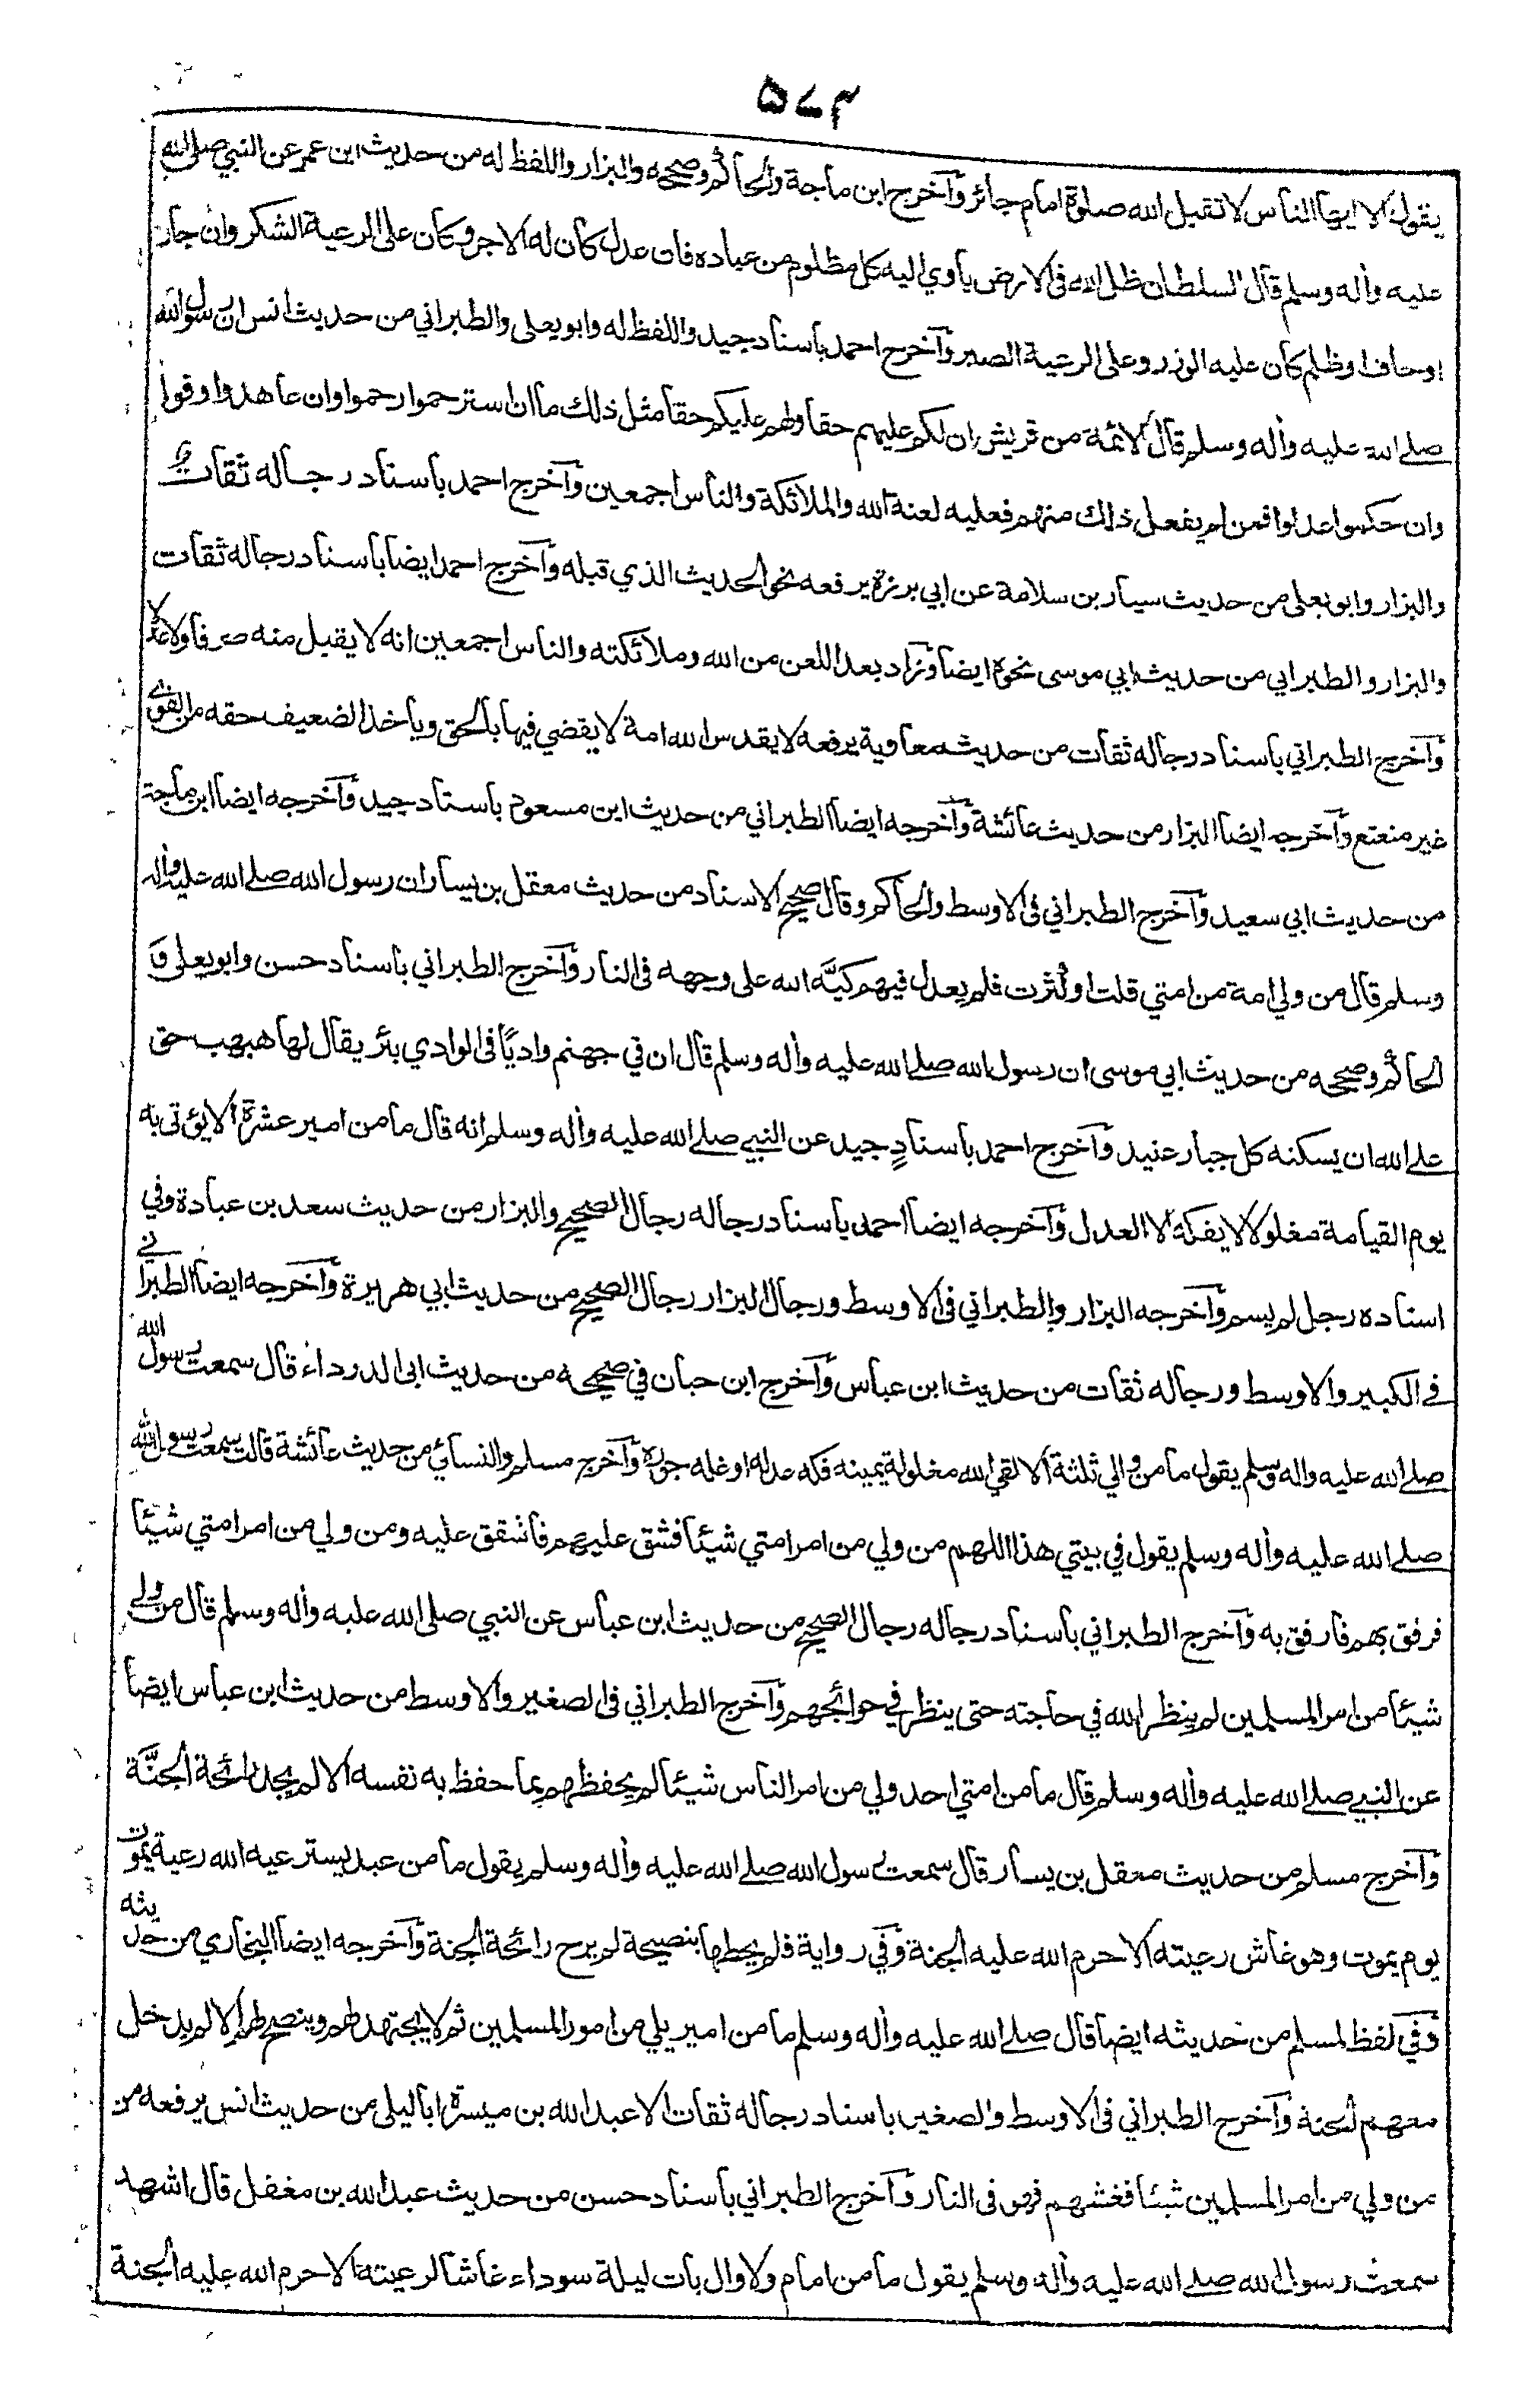 ۵۷۴
يقول الا ايها الناس لا تقبل الله صلوة امام جائر وآخرج ابن ماجة والحاكم وصححه والبزار واللفظ له من حديث ابن عمر عن النبي صلے الله
عليه وأله وسلم قال السلطان ظل الله فى الارض يأوي اليه كل مظلوم من عباده فان عدل كان له الاجر وكان على الرعية الشكر وان جار
اوحاف اوظلم كان عليه الوزر وعلى الرعية الصبر وآخرج احمد باسناد جيد واللفظ له وابو يعلى والطبراني من حديث انس ان رسول الله
صلے الله عليه وأله وسلم قال الائمة من قريش ان لكم عليهم حقا ولهم عليكم حقا مثل ذلك ما ان استرحموا رحموا وان عاهدوا وفوا
وان حكموا عدلوا فمن لم يفعل ذلك منهم فعليه لعنة الله والملائكة والناس اجمعين وآخرج احمد باسناد رجاله ثقات
والبزار وابو يعلى من حديث سيار بن سلامة عن ابي برزة يرفعه نحو الحديث الذي قبله وآخرج احمد ايضا باسناد رجاله ثقات
والبزار والطبراني من حديث ابي موسى نحوه ايضا وزاد بعد اللعن من الله وملائكته والناس اجمعين انه لا يقبل منه صرفا ولا عدلا
وآخرج الطبراني باسناد رجاله ثقات من حديث معاوية يرفعه لا يقدس الله امة لا يقضي فيها بالحق ويأخذ الضعيف حقه من القوي
غير متعتع وآخرجه ايضا البزار من حديث عائشة وآخرجه ايضا الطبراني من حديث ابن مسعود باسناد جيد وآخرجه ايضا ابن ماجة
من حديث ابي سعيد وآخرج الطبراني فى الاوسط والحاكم وقال صحيح الاسناد من حديث معقل بن يسار ان رسول الله صلے الله عليه وأله
وسلم قال من ولي امة من امتي قلت او كثرت فلم يعدل فيهم كبَّه الله على وجهه فى النار وآخرج الطبراني باسناد حسن وابو يعلى و
الحاكم وصححه من حديث ابي موسى ان رسول الله صلے الله عليه وأله وسلم قال ان في جهنم واديًا فى الوادي بئر يقال لها هبهب حق
علے الله ان يسكنه كل جبار عنيد وآخرج احمد باسنادٍ جيد عن النبي صلے الله عليه وأله وسلم انه قال ما من امير عشرة الا يؤتى به
يوم القيامة مغلولا لا يفكه الا العدل وآخرجه ايضا احمد باسناد رجاله رجال الصحيح والبزار من حديث سعد بن عبادة وفي
اسناده رجل لم يسم وآخرجه البزار والطبراني فى الاوسط ورجال البزار رجال الصحيح من حديث ابي هريرة وآخرجه ايضا الطبراني
فے الكبير والاوسط ورجاله ثقات من حديث ابن عباس وآخرج ابن حبان في صحيحه من حديث ابى الدرداء قال سمعت رسول الله
صلے الله عليه واله وسلم يقول ما من والي ثلثة الا لقي الله مغلولة يمينه فكه عدله او غله جوره وآخرج مسلم والنسائي من حديث عائشة قالت سمعت رسول الله
صلے الله عليه وأله وسلم يقول في بيتي هذا اللهم من ولي من امر امتي شيئا فشق عليهم فاشقق عليه ومن ولي من امر امتي شيئا
فرفق بهم فارفق به وآخرج الطبراني باسناد رجاله رجال الصحيح من حديث ابن عباس عن النبي صلى الله عليه وأله وسلم قال من ولے
شيئا من امر المسلمين لم ينظر الله في حاجته حتى ينظر في حوائجهم وآخرج الطبراني فى الصغير والاوسط من حديث ابن عباس ايضا
عن النبي صلے الله عليه وأله وسلم قال ما من امتي احد ولي من امر الناس شيئا لم يحفظهم بما حفظ به نفسه الا لم يجد رائحة الجنَّة
وآخرج مسلم من حديث معقل بن يسار قال سمعت رسول الله صلے الله عليه وأله وسلم يقول ما من عبد يسترعيه الله رعية يموت
يوم يموت وهو غاش رعيته الا حرم الله عليه الجنة وفي رواية فلم يحطها بنصيحة لم يرح رائحة الجنة وآخرجه ايضا البخاري من حديثه
وفي لفظ لمسلم من حديثه ايضا قال صلے الله عليه وأله وسلم ما من امير يلي من امور المسلمين ثم لا يجتهد لهم وينصح لهم الا لم يدخل
معهم الجنة وآخرج الطبراني فى الاوسط والصغير باسناد رجاله ثقات الا عبد الله بن ميسرة ابا ليلى من حديث انس يرفعه من
من ولي من امر المسلمين شيئا فغشهم فهو فى النار وآخرج الطبراني باسناد حسن من حديث عبد الله بن مغفل قال اشهد
سمعت رسول الله صلے الله عليه وأله وسلم يقول ما من امام ولا وال بات ليلة سوداء غاشا لرعيته الا حرم الله عليه الجنة